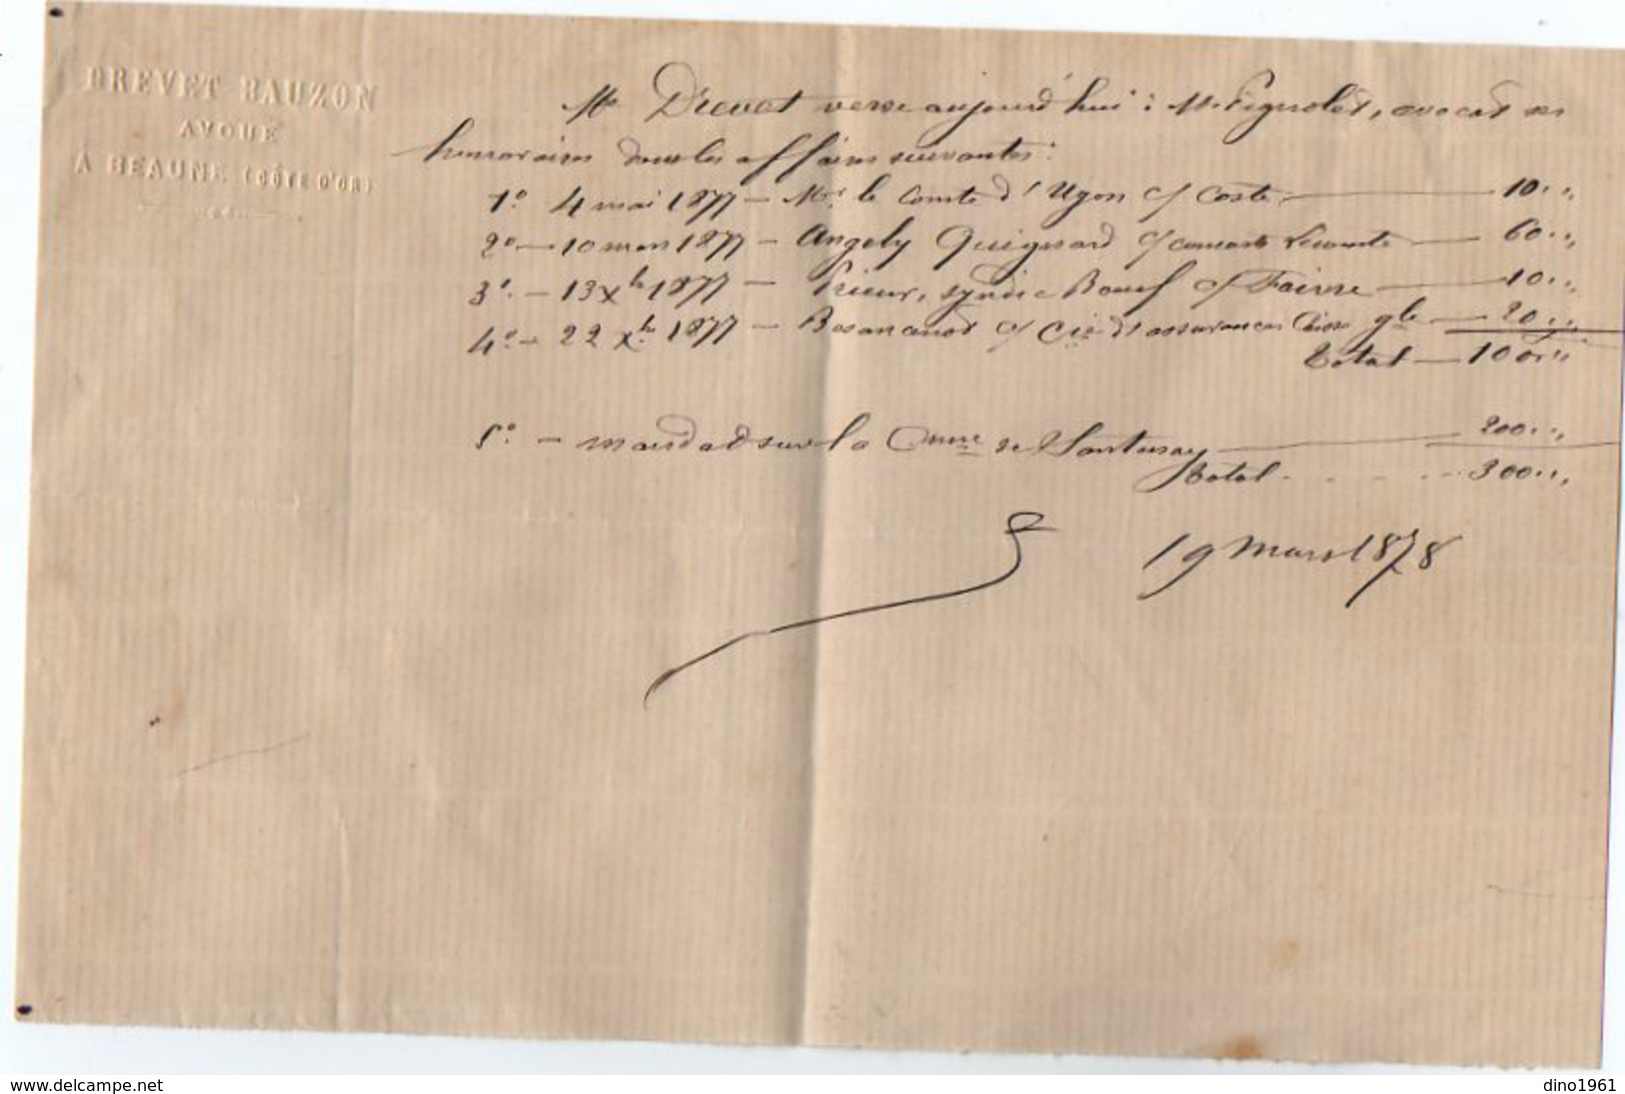 DREVET BAUZON
AVOUÉ
À BEAUNE (CÔTE D'OR)
Me Drevet verse aujourd'hui à M. Pignolet, avocat ses
honoraires dans les affaires suivantes:
1º 4 mai 1877 — Mr. le Comte d'Ugon c/ Coste — 10 . ,,
2º — 10 mars 1877 — Angely Quignard c/ consorts Lecomte — 60 . ,,
3º. — 13 Xbre 1877 — Prieur, syndic Boeuf c/ Faivre — 10 . ,,
4º. — 22 Xbre 1877 — Besancenot c/ Cie d'assurances Caisse gle — 20 . ,,
Total — 100 . ,,
5º. — mandat sur la Cmne de Santenay — 200 . ,,
Total - - - - 300 . ,,
19 Mars 1878
www.delcampe.net
dino1961